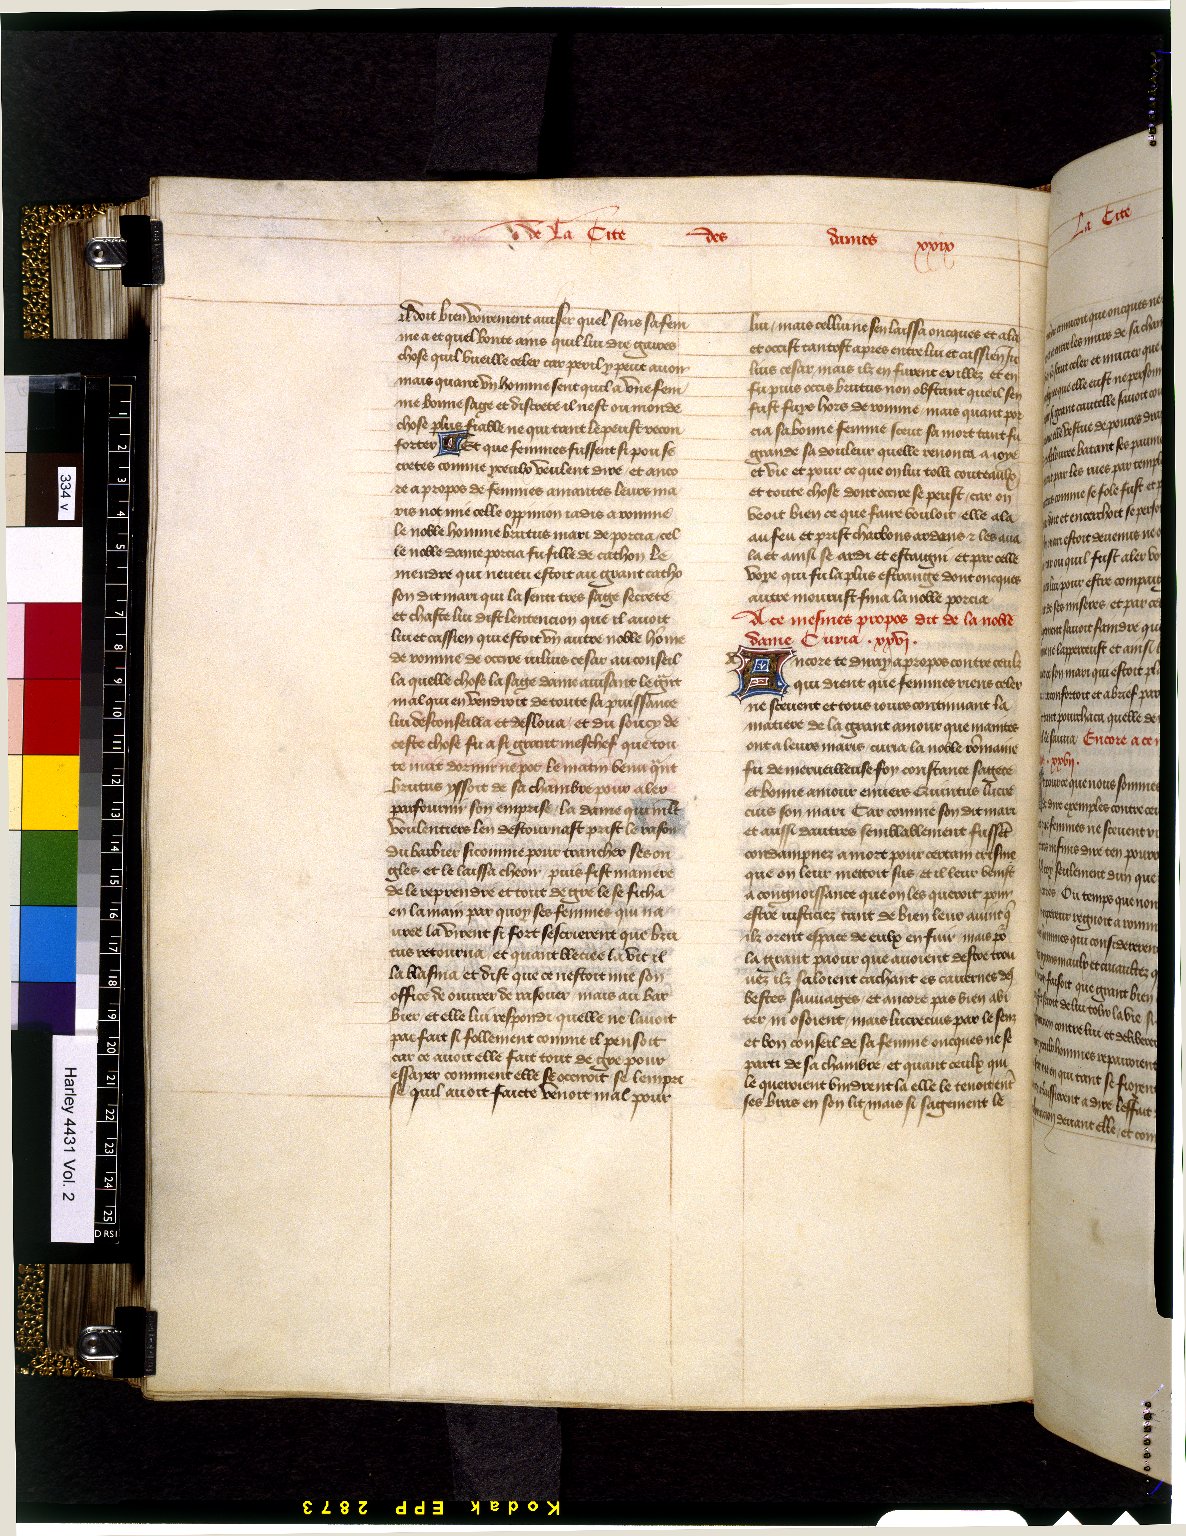 de La Cite des dames xxix
il doit bien voirement auiser quel sens sa fem
me a et quel bonte ains quil lui die gaires
chose quil vueille celer car peril y peut auoir
mais quant vn homme sent quil a vne fem
me bonne sage et discrete il nest ou monde
chose plus fiable ne qui tant le peust recon
forter Et que femmes fussent si pou se
cretes comme yceulx veulent dire et anco
re a propos de femmes amantes leurs ma
ris not mie celle oppinion iadis a romme
le noble homme brutus mari de porcia cel
le noble dame porcia fu fille de cathon le
mendre qui neueu estoit au grant catho
son dit mari qui la senti tres sage secrete
et chaste lui dist lentencion que il auoit
lui et cassien qui estoit vn autre noble home
de romme de occire iulius cesar au conseil
la quelle chose la sage dame auisant le grant
mal qui en vendroit de toute sa puissance
lui desconseilla et desloua et du soucy de
ceste chose fu a si grant meschef que tou
te nuit dormir ne pot le matin venu quant
brutus yssoit de sa chambre pour aler
parfournir son emprise la dame qui mlt
voulentiers len destournast prist le rasoir
du barbier si comme pour trancher ses on
gles et le laissa cheoir puis fist maniere
de le reprendre et tout de gre le se ficha
en la main par quoy ses femmes qui na
uree la virent si fort sescrierent que bru
tus retourna et quant bleciee la vit il
la blasma et dist que ce nestoit mie son
office de ouurer de rasouer mais au bar
bier et elle lui respondi quelle ne lauoit
pas fait si follement comme il pensoit
car ce auoit elle fait tout de gre pour
essayer comment elle se occiroit se lempri
se quil auoit faicte venoit mal pour
lui mais cellui ne sen laissa oncques et ala
et occist tantost apres entre lui et cassien iu
lius cesar mais ilz en furent exillez et en
fu puis occis brutus non obstant que il sen
fust fuye hors de romme mais quant por
cia sa bonne femme sceut sa mort tant fu
grande sa douleur quelle renonca a ioye
et vie et pour ce que on lui tolli couteaulx
et toute chose dont occire se peust car on
veoit bien ce que faire vouloit elle ala
au feu et prist charbons ardans et les aua
la et ainsi se ardi et estaigni et par celle
voye qui fu la plus estrange dont oncques
autre mourust fina la noble porcia
A ce mesmes propos dit de la noble
dame Curia .xxvi.
Ancore te diray a propos contre ceulx
qui dient que femmes riens celer
ne sceuent et tous iours continuant la
matiere de la grant amour que maintes
ont a leurs maris curia la noble rommaine
fu de merueilleuse foy constance sagece
et bonne amour enuers Quintus lucre
cius son mari Car comme son dit mari
et aussi dautres semblablement fussent
condampnez a mort pour certain crisme
que on leur mettoit sus et il leur venist
a congnoissance que on les queroit pour
estre iusticiez tant de bien leur auint que
ilz orent espace de eulx en fuir mais pour
la grant paour que auoient destre trou
uez ilz saloient cachant es cauernes des
bestes sauuages et ancore pas bien abi
ter ni osoient mais lucrecius par le sens
et bon conseil de sa femme oncques ne se
parti de sa chambre et quant ceulx qui
le queroient vindrent la elle le tenoit entre
ses bras en son lit mais si sagement le
La Cite
Encore a ce
.xxvii.
334 v
Harley 4431 Vol. 2
Kodak EPP 2873